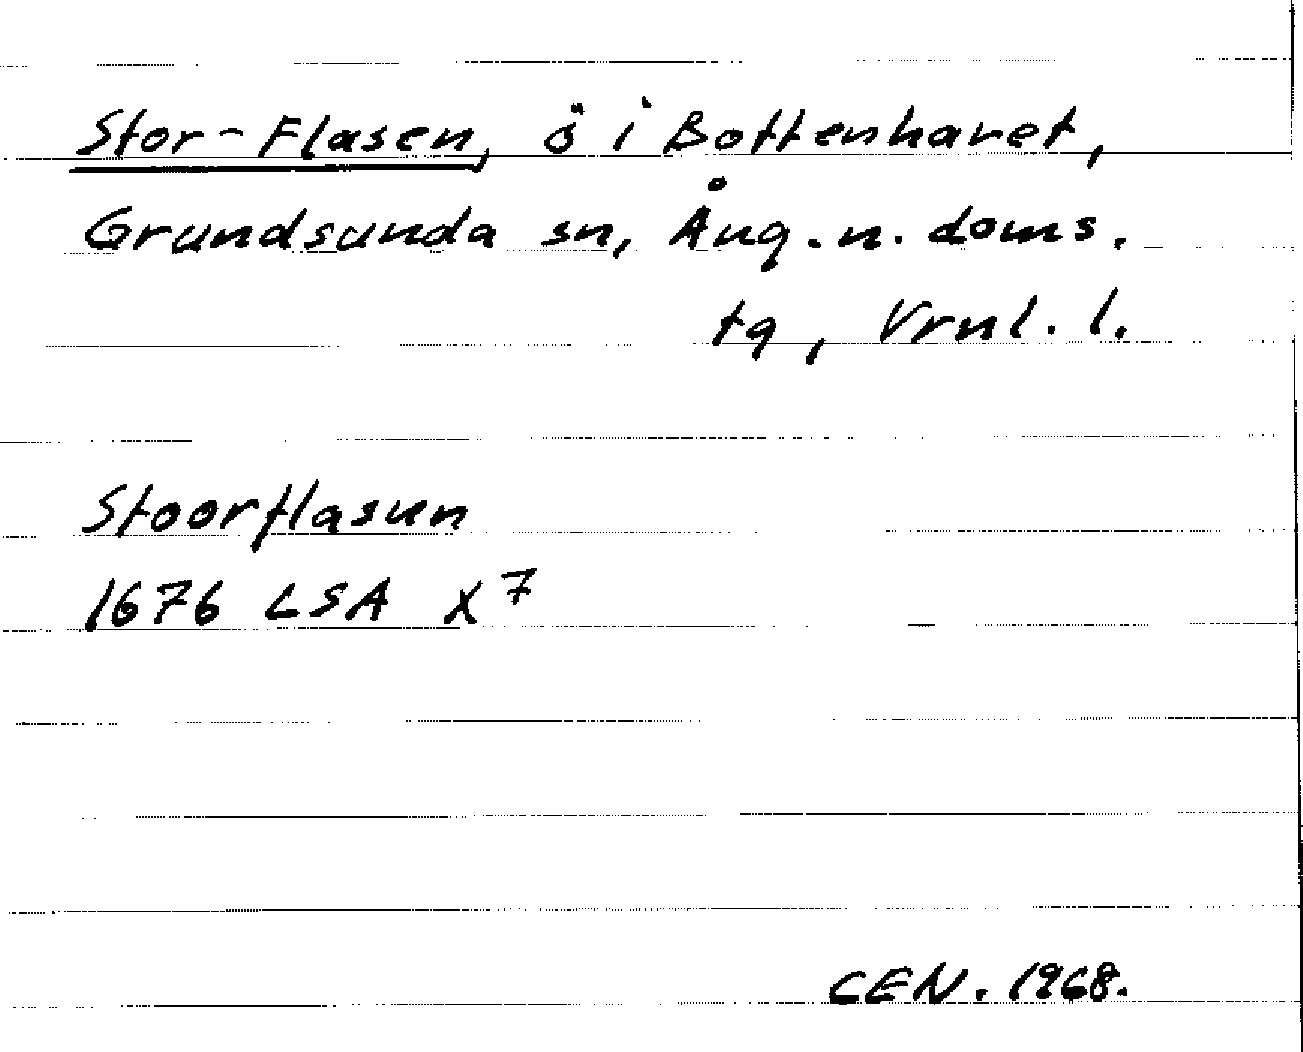 Stor-Flasen, ö i Bottenhavet,
Grundsunda sn, Ång. n. doms.
tg, Vrnl. l.
Stoorflasun
1676 LSA X 7
CEN. 1968.